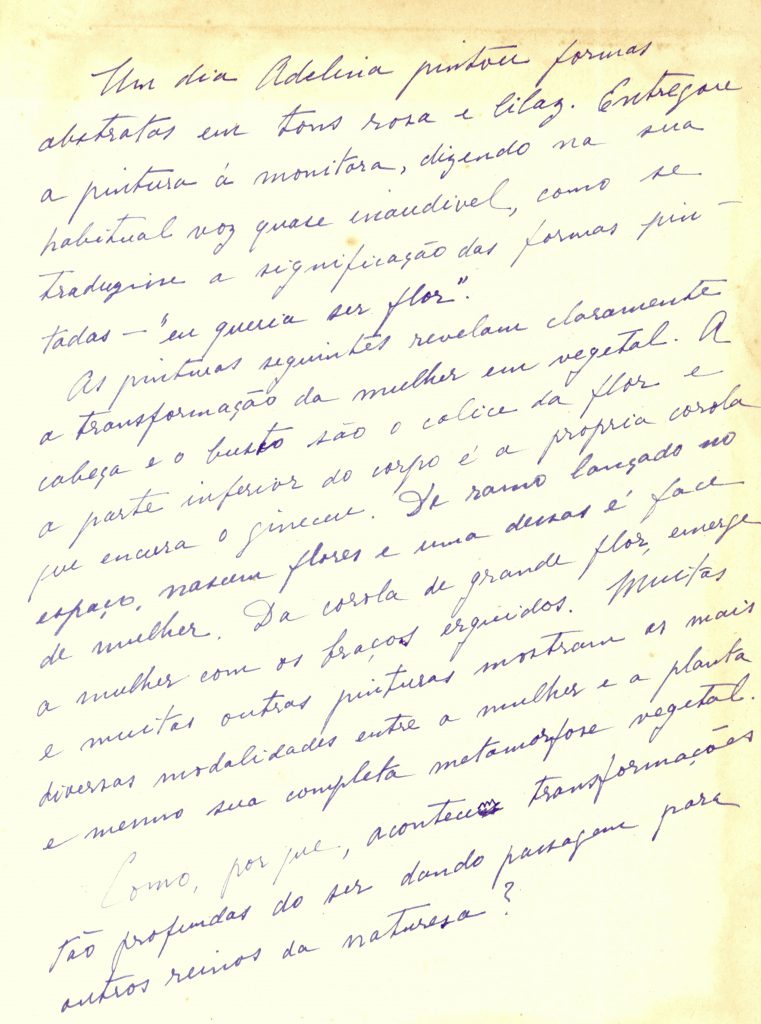 Um dia Adelina pintou formas
abstratas em tons rosa e lilaz. Entregou
a pintura á monitora, dizendo na sua
habitual voz quase inaudivel, como se
traduzisse a significação das formas pin-
tadas — "eu queria ser flor".
As pinturas seguintes revelam claramente
a transformação da mulher em vegetal. A
cabeça e o busto são o calice da flor e
a parte inferior do corpo é a propria corola
que encerra o gineceu. De ramo lançado no
espaço, nascem flores e uma dessas é face
de mulher. Da corola de grande flor, emerge
a mulher com os braços erguidos. Muitas
e muitas outras pinturas mostram as mais
diversas modalidades entre a mulher e a planta
e mesmo sua completa metamorfose vegetal.
Como, por que, acontecem transformações
tão profundas do ser dando passagem para
outros reinos da natureza?